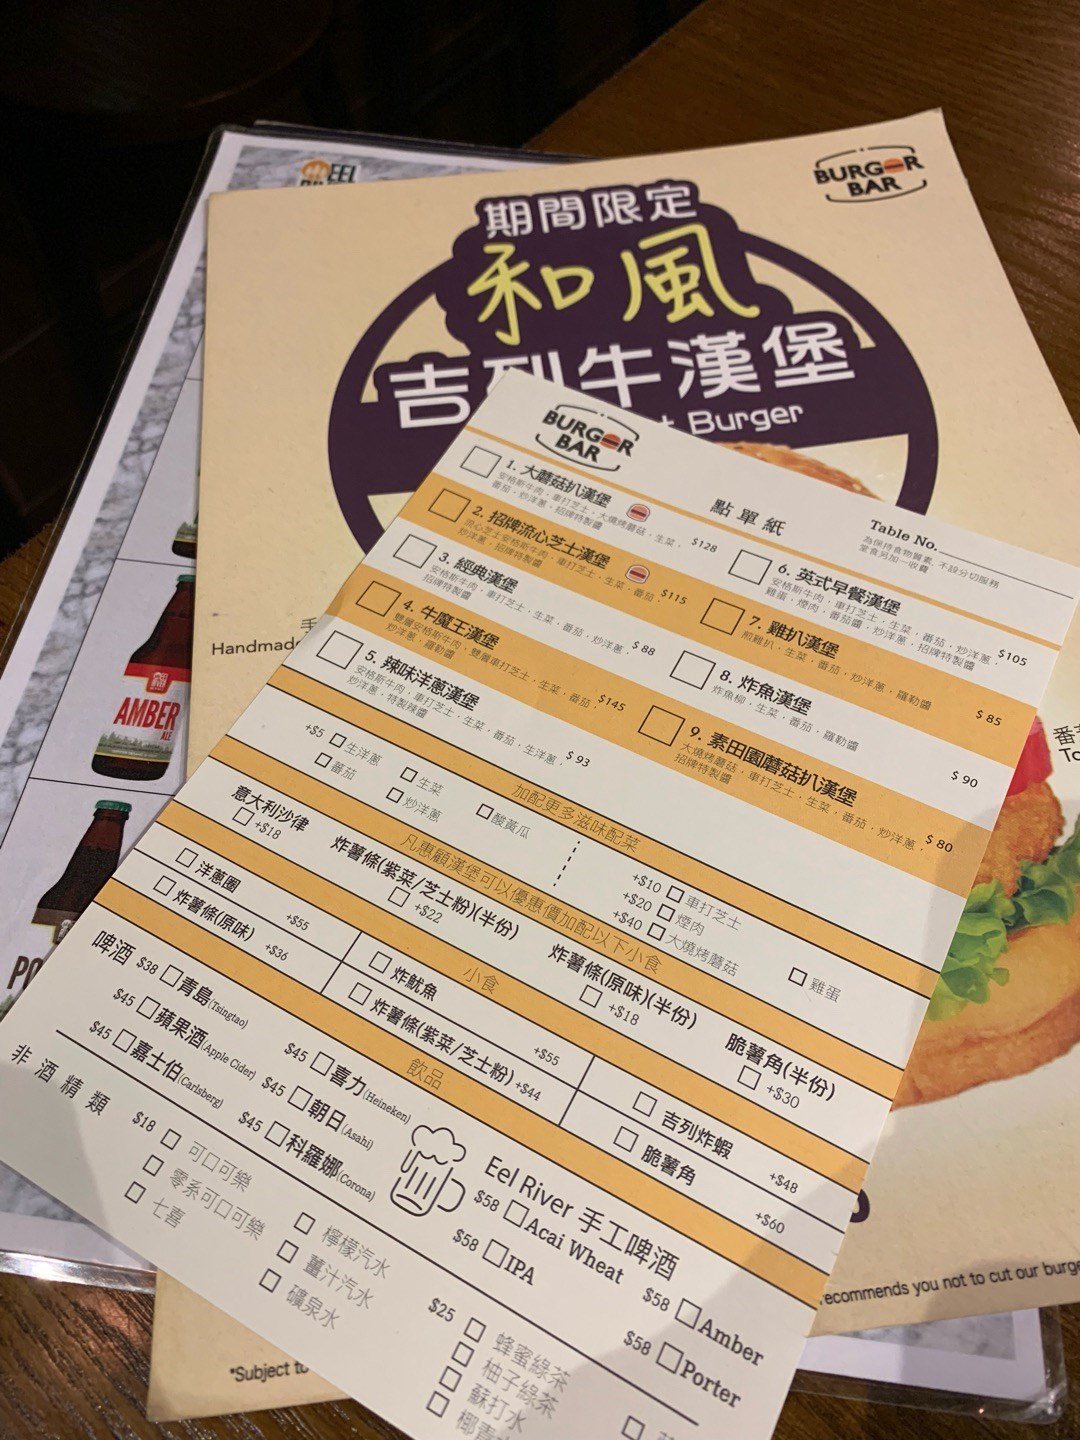 EEL
BURGER
BAR
期間限定
和風
吉列牛漢堡
Burger
Handmade
AMBER
ALE
BURGER
BAR
點單紙
Table No.
為保持食物質素, 不設分切服務
堂食另加一收費
1. 大蘑菇扒漢堡
安格斯牛肉．車打芝士．大燒烤蘑菇．生菜．
番茄．炒洋蔥．招牌特製醬
$128
2. 招牌流心芝士漢堡
流心芝士安格斯牛肉．車打芝士．生菜．番茄．
炒洋蔥．招牌特製醬
$115
3. 經典漢堡
安格斯牛肉．車打芝士．生菜．番茄．炒洋蔥．
招牌特製醬
$88
4. 牛魔王漢堡
雙層安格斯牛肉．雙層車打芝士．生菜．番茄．
炒洋蔥．羅勒醬
$145
5. 辣味洋蔥漢堡
安格斯牛肉．車打芝士．生菜．番茄．生洋蔥．
炒洋蔥．特製辣醬
$93
6. 英式早餐漢堡
安格斯牛肉．車打芝士．生菜．番茄．炒洋蔥．
雞蛋．煙肉．番茄醬．炒洋蔥．招牌特製醬
$105
7. 雞扒漢堡
煎雞扒．生菜．番茄．炒洋蔥．羅勒醬
$85
8. 炸魚漢堡
炸魚柳．生菜．番茄．羅勒醬
$90
9. 素田園蘑菇扒漢堡
大燒烤蘑菇．車打芝士．生菜．番茄．炒洋蔥．
招牌特製醬
$80
加配更多滋味配菜
+$5 生洋蔥
生菜
酸黃瓜
番茄
炒洋蔥
+$10 車打芝士
+$20 煙肉
+$40 大燒烤蘑菇
雞蛋
凡惠顧漢堡可以優惠價加配以下小食
意大利沙律
+$18
炸薯條(紫菜/芝士粉)(半份)
+$22
炸薯條(原味)(半份)
+$18
脆薯角(半份)
+$30
小食
洋蔥圈 +$55
炸魷魚 +$55
吉列炸蝦 +$48
炸薯條(原味) +$36
炸薯條(紫菜/芝士粉) +$44
脆薯角 +$60
飲品
啤酒
$38 青島(Tsingtao)
$45 蘋果酒(Apple Cider)
$45 嘉士伯(Carlsberg)
$45 喜力(Heineken)
$45 朝日(Asahi)
$45 科羅娜(Corona)
Eel River 手工啤酒
$58 Acai Wheat
$58 IPA
$58 Amber
$58 Porter
非酒精類
$18 可口可樂
零系可口可樂
七喜
檸檬汽水
薑汁汽水
礦泉水
$25 蜂蜜綠茶
柚子綠茶
蘇打水
recommends you not to cut our burge
*Subject to